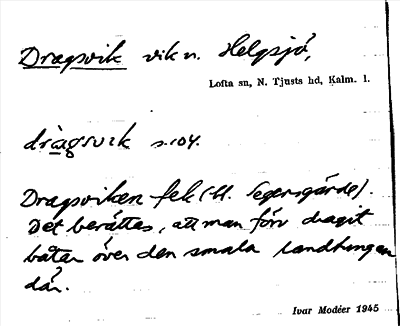 Dragsvik vik n. Helgsjö,
Lofta sn, N. Tjusts hd, Kalm. l.
dràgsvɩk s. 104.
Dragsviken fek (t. Segersgärde).
Det berättas, att man förr dragit
båtar över den smala landtungan
där.
Ivar Modéer 1945